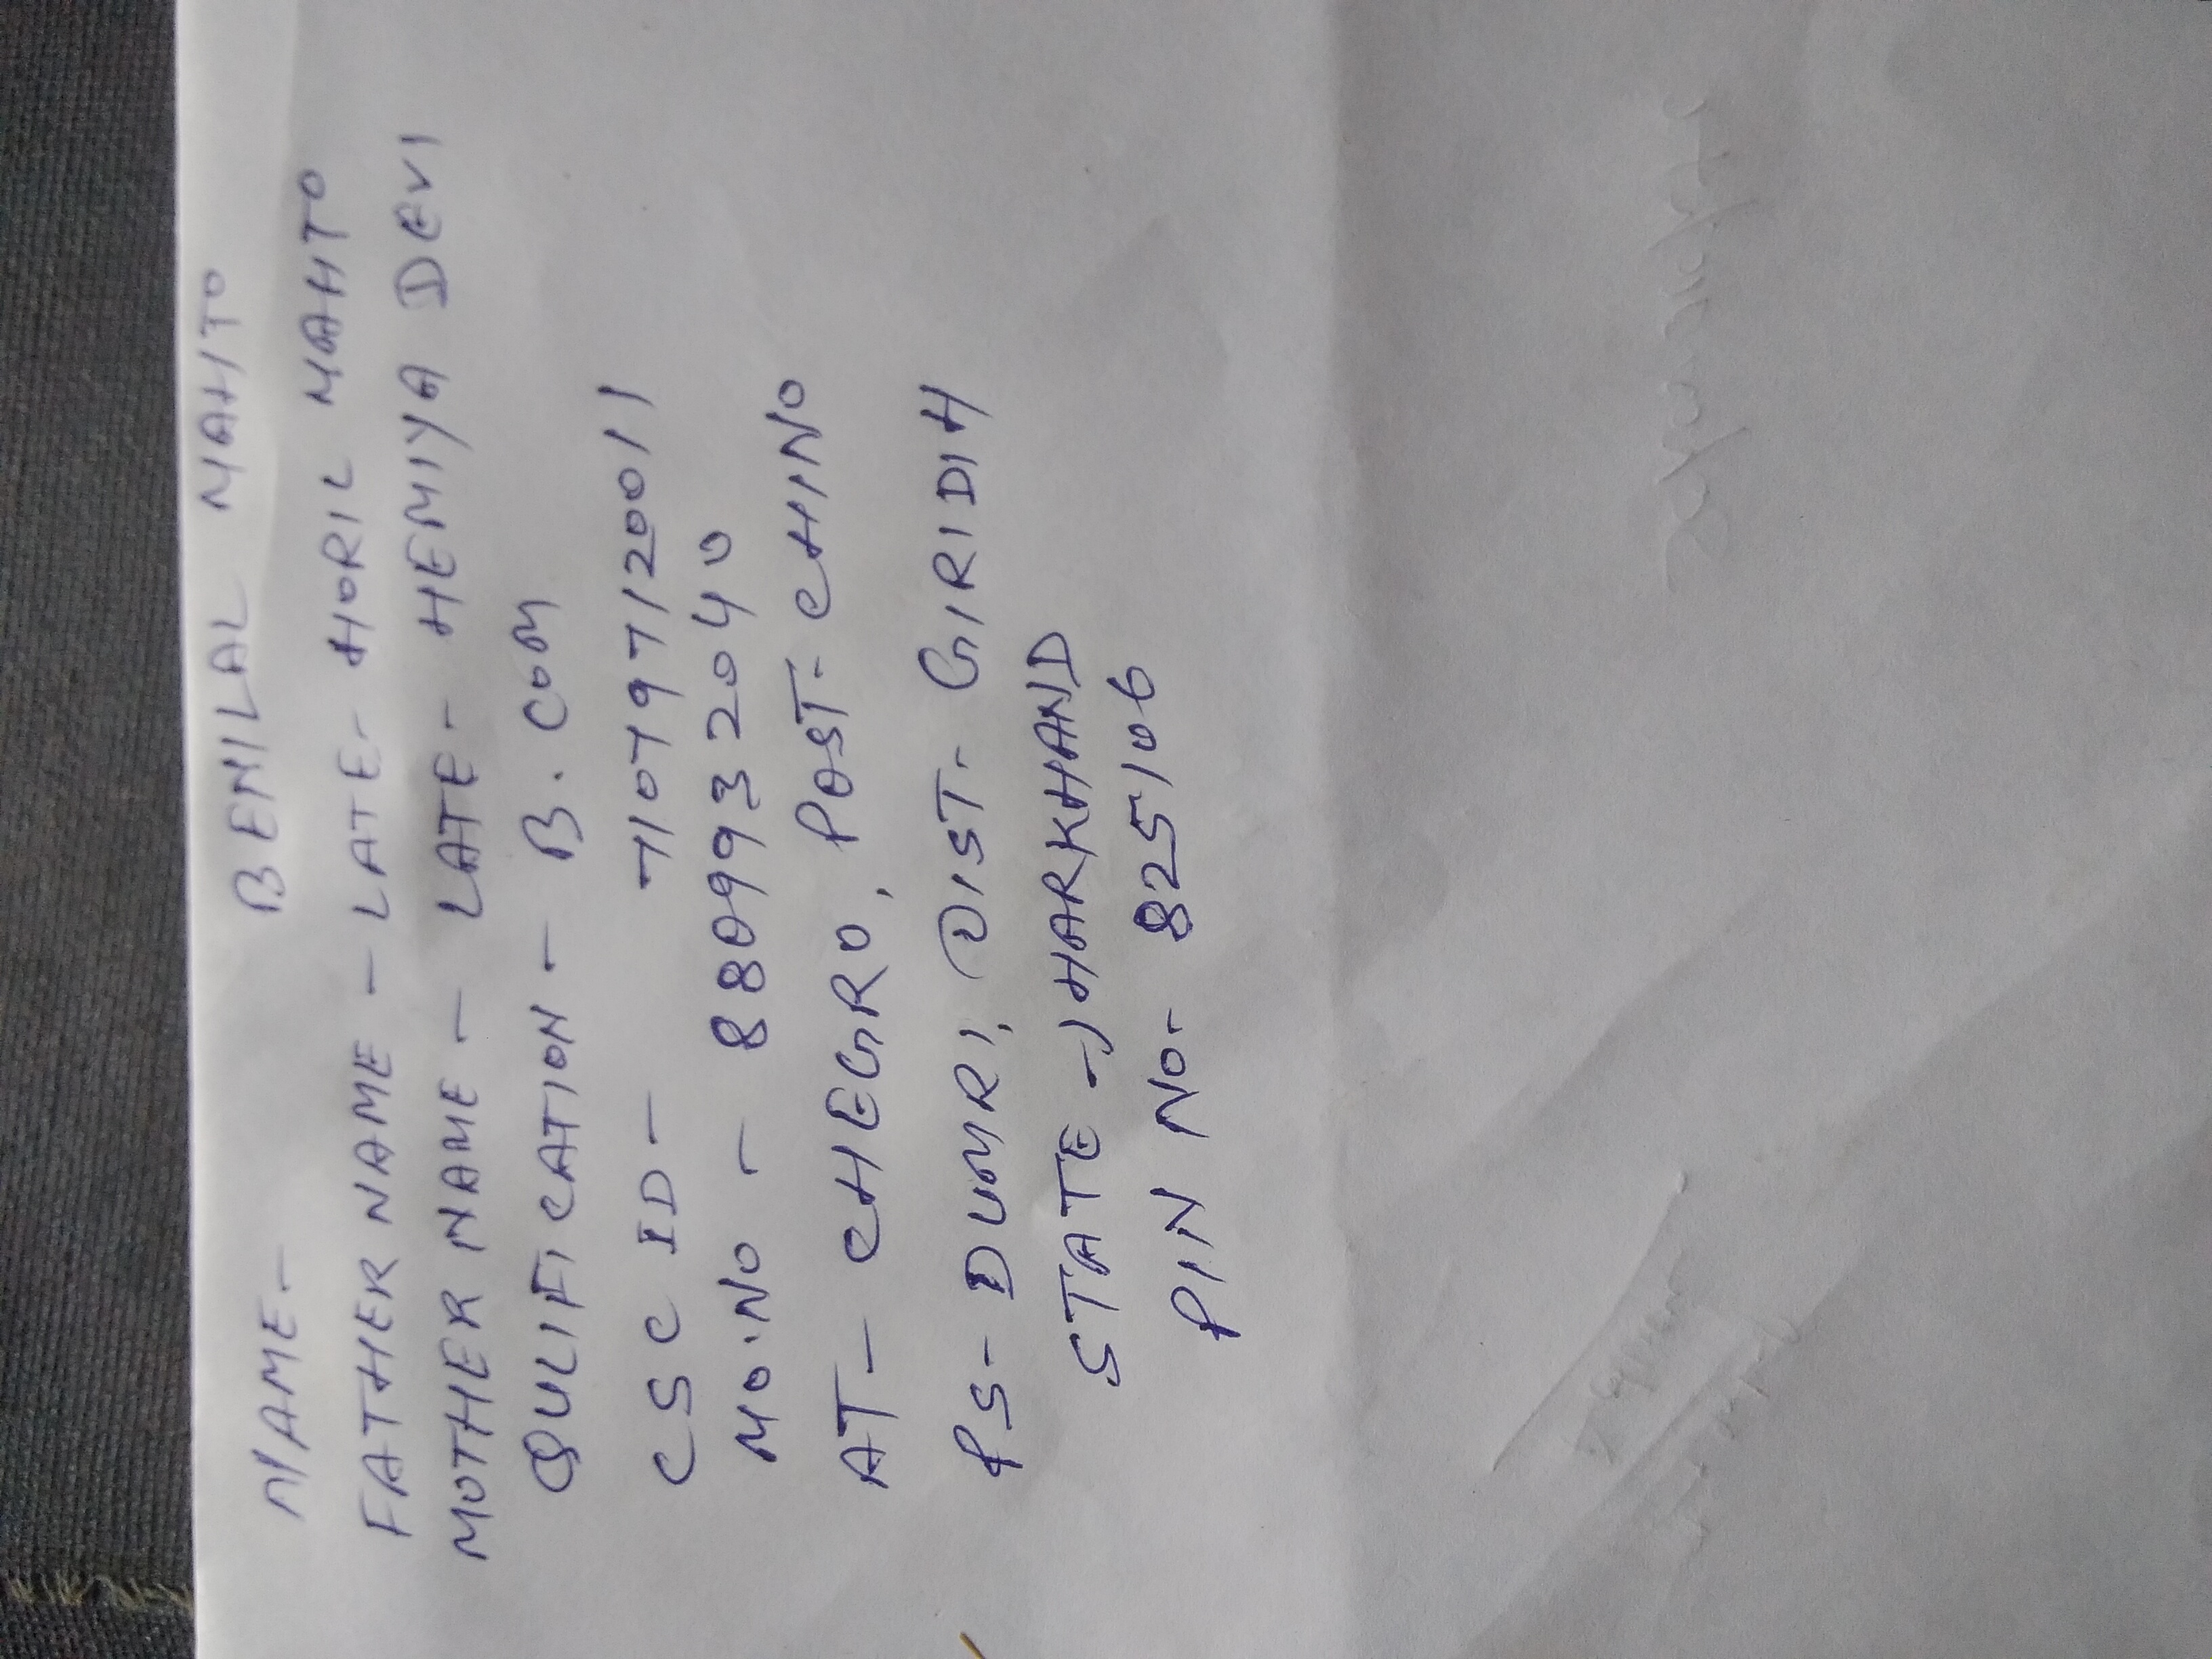 NAME- BENILAL MAHTO
FATHER NAME - LATE- HORIL MAHTO
MOTHER NAME - LATE - HEMIYA DEVI
QULIFICATION - B. COM
CSC ID - 710797120011
MO.NO - 8809932040
AT- CHEGRO, POST- CHINO
PS- DUMRI, DIST- GIRIDIH
STATE - JHARKHAND
PIN NO- 825106